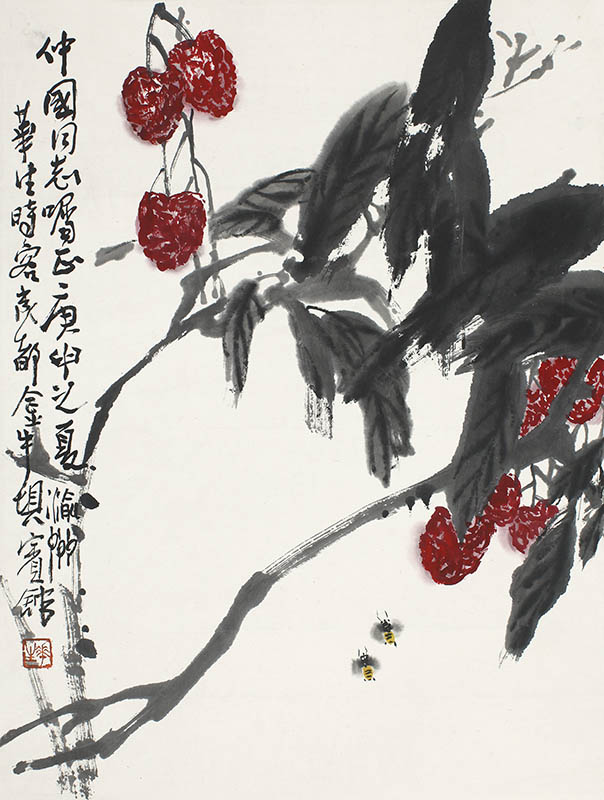 仲國同志囑正庚申之夏渝州
華生時客成都金牛埧賓館
華生